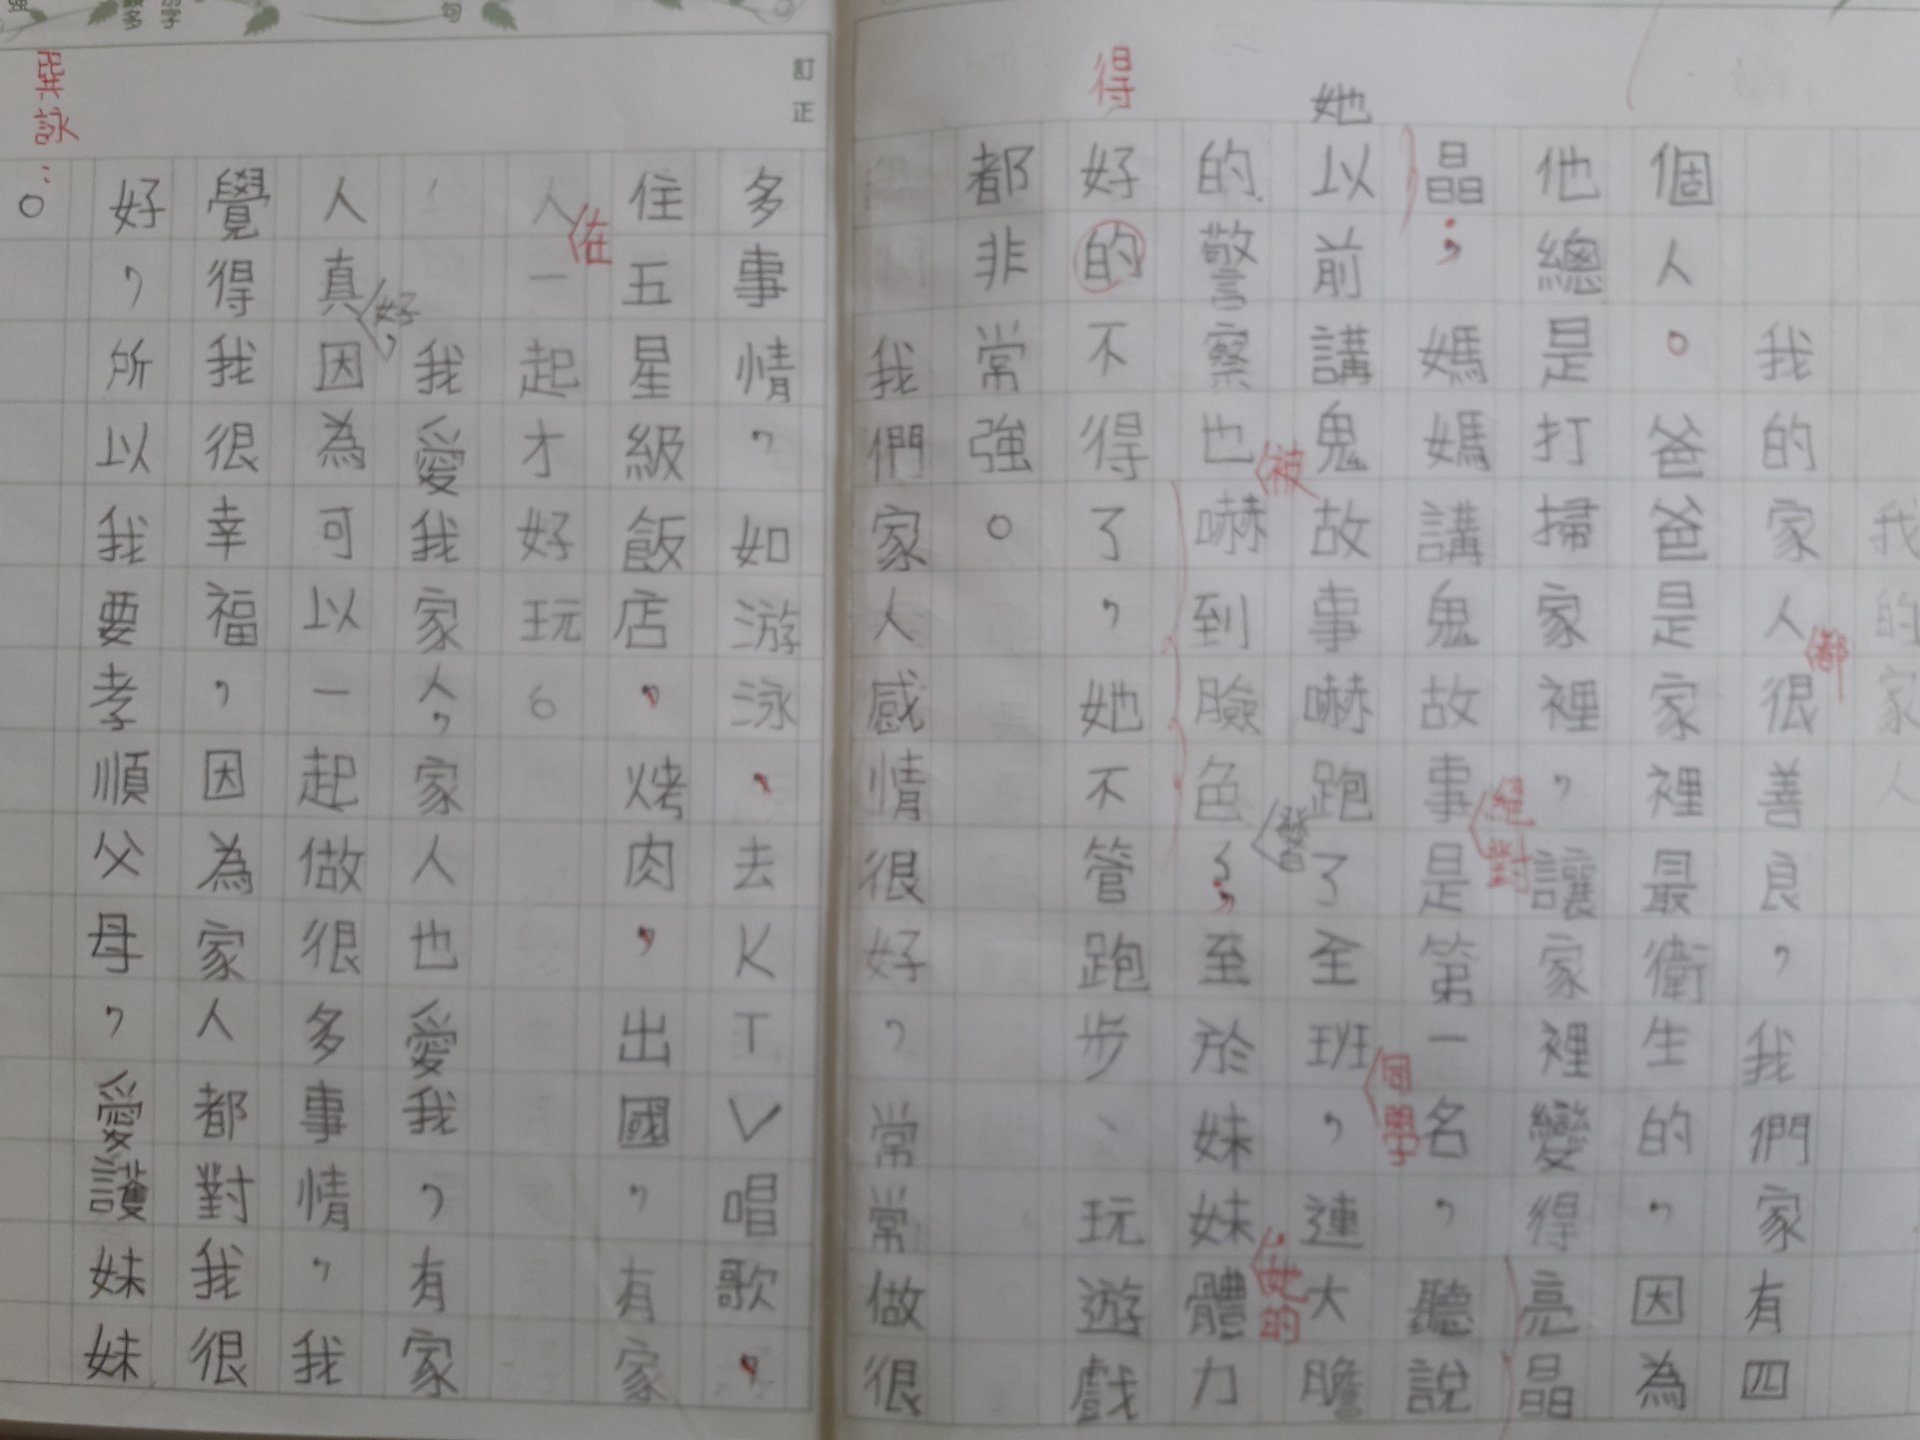 我的家人
我的家人很善良，我們家有四
都
個人。爸爸是家裡最衛生的，因為
他總是打掃家裡，讓家裡變得亮晶
晶；媽媽講鬼故事是第一名，聽說
絕對
她
以前講鬼故事嚇跑了全班，連大膽
同學
的警察也嚇到臉色，至於妹妹體力
被
發白
她的
得
好的不得了，她不管跑步、玩遊戲
都非常強。
我們家人感情很好，常常做很
訂正
多事情，如游泳、去KTV唱歌，
住五星級飯店，烤肉，出國，有家
在
人一起才好玩。
我愛我家人，家人也愛我，有家
人真因為可以一起做很多事情，我
好，
覺得我很幸福，因為家人都對我很
好，所以我要孝順父母，愛護妹妹
。
巽詠：